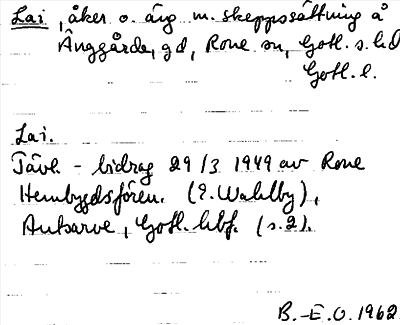 Lai, åker o. äng m. skeppssättning å
Änggårde, gd, Rone sn, Gotl. s. hd
Gotl. l.
Lai.
Tävl. - bidrag 29/3 1949 av Rone
Hembygdsfören. (E. Wahlby),
Autsarve, Gotl. hbf. (s. 2).
B.-E.O. 1962